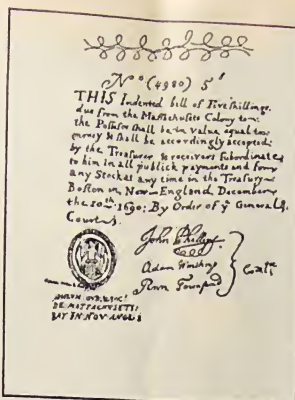 No (4980) 5s
THIS Indented bill of Five shillings
due from the Massachusets Colony to
the Possesor shall be in value equal to
money & shall be accordingly accepted
by the Treasurer & receivers subordinate
to him in all publick payments and for
any Stock at any time in the Treasury
Boston in New-England, December
the 10th 1690: By Order of ye General
Court
John Phillips
Adam Winthrop
Penn Townsend
Comtee